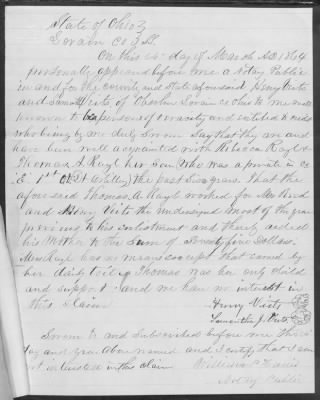 State of Ohio
Lorain Co SS.
On this 15th day of March AD 1864
personally appeared before me a Notary Public
in and for the county and State aforesaid Henry Viets
and Samantha Viets of Oberlin Lorain co Ohio to me well
known to be persons of veracity and entitled to credit
who being by me duly Sworn Say that they are and
have been well acquainted with Rebecca Rayl &
Thomas A Rayl her Son (Who was a private in co
"E" 1st O.V. Artillery) the past Six years that the
aforesaid Thomas A Rayl worked for Mr
and Henry Viets the undersigned most of the year
previous to his enlistment and thereby aided
his Mother to the Sum of Seventy five Dollars.
Mrs Rayl has no means except that earned by
her daily toil, & Thomas was her only child
and Support and we have no interest in
this Claim
Henry Viets
Samantha J. Viets
Sworn to and Subscribed before me this
day and year above named and I certify that I am
not interested in this claim
William
Notary Public